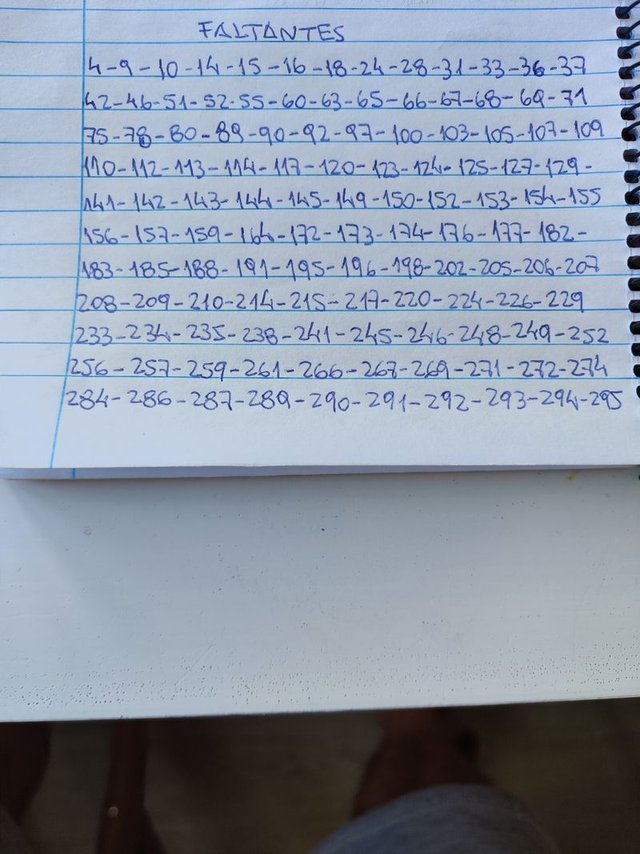 FALTANTES
4-9-10-14-15-16-18-24-28-31-33-36-37
42-46-51-52-55-60-63-65-66-67-68-69-71
75-78-80-89-90-92-97-100-103-105-107-109
110-112-113-114-117-120-123-124-125-127-129-
141-142-143-144-145-149-150-152-153-154-155
156-157-159-164-172-173-174-176-177-182-
183-185-188-191-195-196-198-202-205-206-207
208-209-210-214-215-217-220-224-226-229
233-234-235-238-241-245-246-248-249-252
256-257-259-261-266-267-269-271-272-274
284-286-287-289-290-291-292-293-294-295